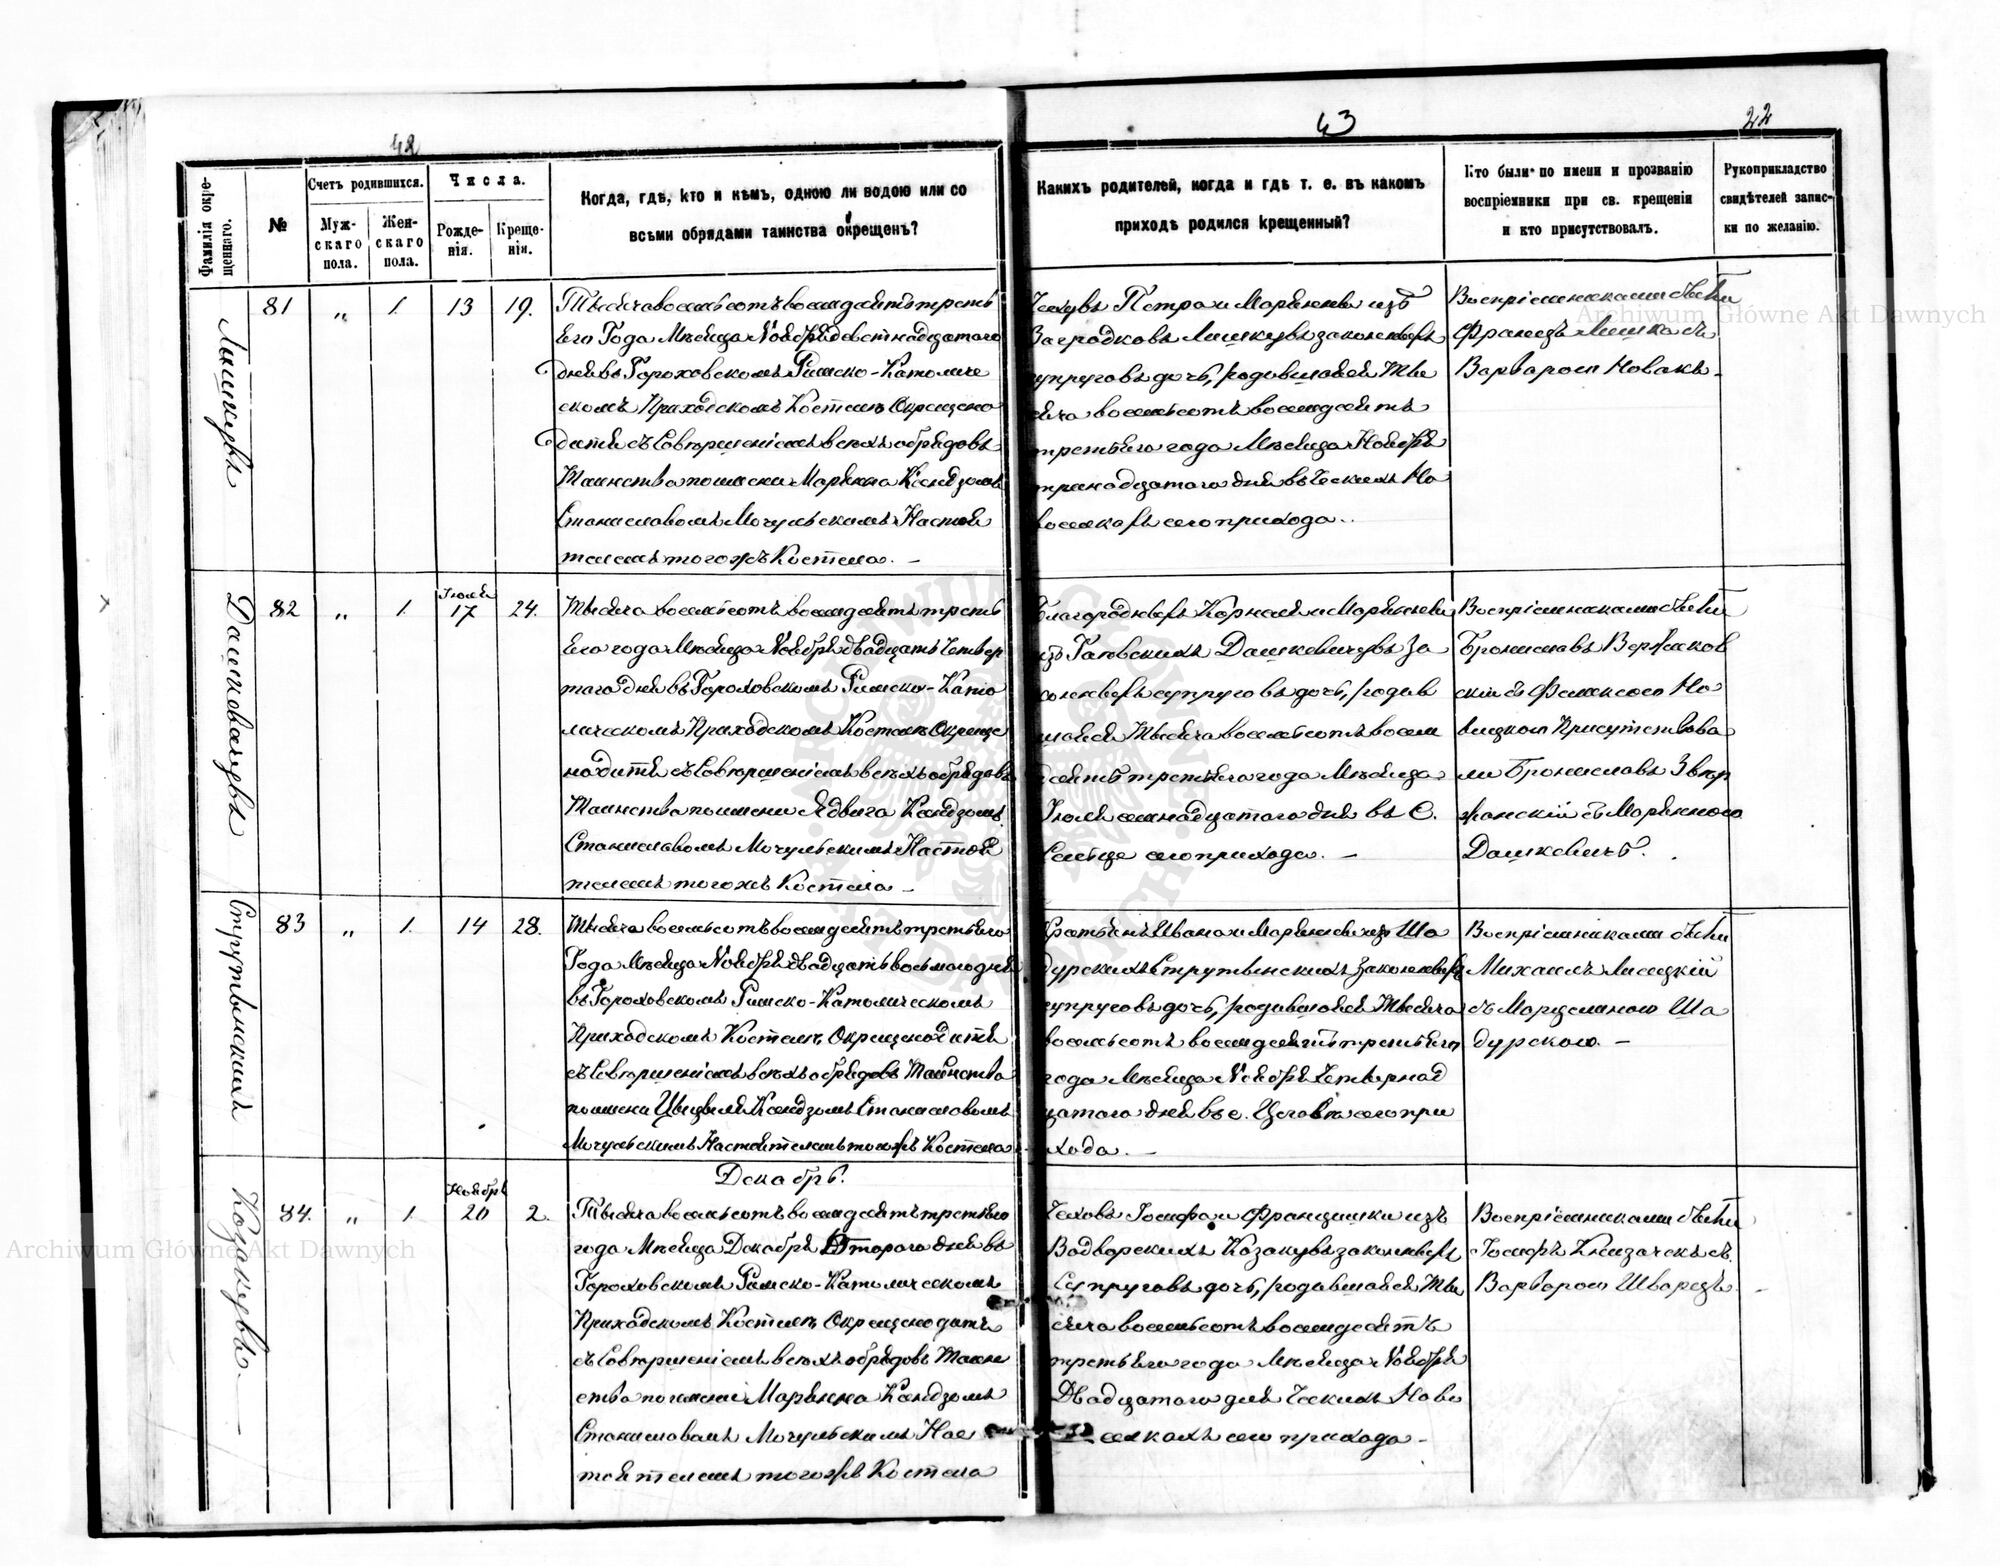 42
43
22
Фамилія окре-
щеннаго.
№
Счетъ родившихся.
Муж-
скаго
пола.
Жен-
скаго
пола.
Числа.
Рожде-
нія.
Креще-
нія.
Когда, гдѣ, кто и кѣмъ, одною ли водою или со
всѣми обрядами таинства окрещенъ?
Какихъ родителей, когда и гдѣ т. е. въ какомъ
приходѣ родился крещенный?
Кто были по имени и прозванію
воспріемники при св. крещеніи
и кто присутствовалъ.
Рукоприкладство
свидѣтелей запис-
ки по желанію.
81
„
1
13
19.
Тысяча восемьсотъ восемдесятъ треть
Его Года Мѣсяца Ноября девятнадцатого
дня въ Гороховскомъ Римско-Католиче
скомъ Приходскомъ Костелѣ Окрещено
дитя съ Совершеніемъ всѣхъ обрядовъ
Таинства по имени Марянна Ксендзомъ
Станиславомъ Мочульскимъ Настоя
телемъ того жъ Костела. —
Чеховъ Петра и Марянны изъ
супруговъ дочь, родившаяся Ты
сяча восемьсотъ восемдесятъ
третьяго года Мѣсяца Ноября
тринадцатого дня въ Ческихъ Но
его прихода.
Воспріемниками были
Францъ съ
Варварою Новакъ.
82
„
1
Іюля
17
24.
Тысяча восемьсотъ восемдесятъ треть
Его года Мѣсяца Ноября двадцать Четвер
того дня въ Гороховскомъ Римско-Като
лическомъ Приходскомъ Костелѣ Окреще
но дитя съ Совершеніемъ всѣхъ обрядовъ
Таинства по имени Ядвига Ксендзомъ
Станиславомъ Мочульскимъ Настоя
телемъ того жъ Костела —
Благородныхъ Корнелія и Марянны
изъ Дашкевичувъ за
конныхъ супруговъ дочь, родив
шаяся Тысяча восемьсотъ восем
десятъ третьяго года Мѣсяца
Іюля семнадцатого дня въ С.
Сельце его прихода. —
Воспріемниками были
Брониславъ
скій съ Но
вицкою Присутствова
ли Брониславъ
съ Марянною
Дашкевичъ.
Струтынская
83
„
1
14
28.
Тысяча восемьсотъ восемдесятъ третьяго
Года Мѣсяца Ноября двадцать восьмого дня
въ Гороховскомъ Римско-Католическомъ
Приходскомъ Костелѣ Окрещено дитя
съ Совершеніемъ всѣхъ обрядовъ Таинства
по имени Ксендзомъ Станиславомъ
Мочульскимъ Настоятелемъ того жъ Костела
Крестьянъ Ивана и Марянны изъ Ша
дурскихъ Струтынскихъ законныхъ
супруговъ дочь, родившаяся Тысяча
восемьсотъ восемдесятъ третьяго
года Мѣсяца Ноября Четырнад
цатого дня въ с. его при
хода. —
Воспріемниками были
Михаилъ Лисецкій
съ Марцелиною Ша
дурскою. —
Козакувъ. —
Декабрь.
84.
„
1
Ноября
20
2.
Тысяча восемьсотъ восемдесятъ третьяго
года Мѣсяца Декабря Второго дня въ
Гороховскомъ Римско-Католическомъ
Приходскомъ Костелѣ Окрещено дитя
съ Совершеніемъ всѣхъ обрядовъ Таин
ства по имени Марянна Ксендзомъ
Станиславомъ Мочульскимъ Нас
тоятелемъ того жъ Костела
Чеховъ Іосифа и Францишки изъ
Водворскихъ Козакувъ законныхъ
Супруговъ дочь, родившаяся Ты
сяча восемьсотъ восемдесятъ
третьяго года Мѣсяца Ноября
Двадцатого дня Ческихъ Ново
селкахъ его прихода —
Воспріемниками были
Іосифъ съ
Варварою Шварецъ. —
Archiwum Główne Akt Dawnych
Archiwum Główne Akt Dawnych